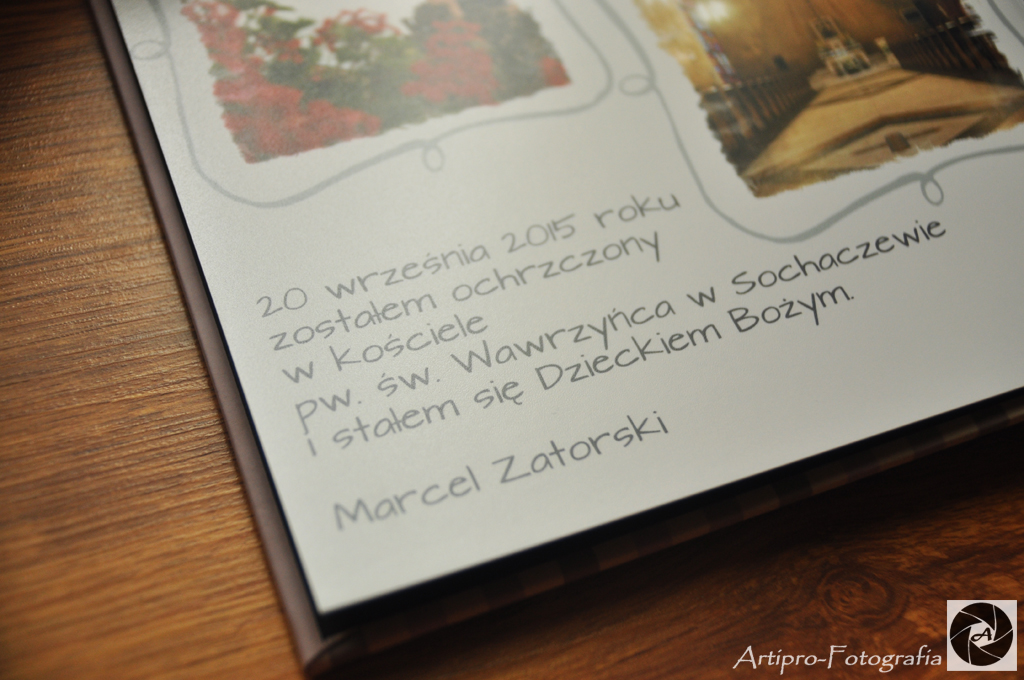 20 września 2015 roku
zostałem ochrzczony
w kościele
pw. św. Wawrzyńca w Sochaczewie
i stałem się Dzieckiem Bożym.
Marcel Zatorski
Artipro-Fotografia
A